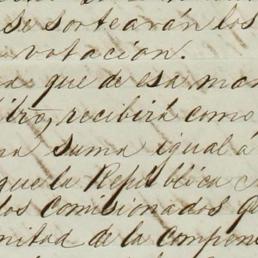 se sortearán los
votacion.
que de esa man
recibirá como
suma igual á
que la República
los comisionados q
mitad de la compen